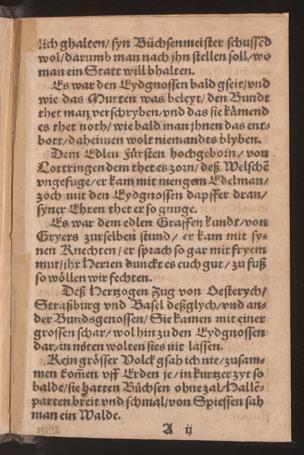 lich ghalten/ syn Büchsenmeister schussẽd
wol/ darumb man nach jhn stellen soll/ wo
man ein Statt will bhalten.
Es war den Eydgnossen bald gseit/ vnd
wie das Murten was beleyt/ den Bundt
thet man verschryben/ vnd das sie kåmend
es thet noth/ wie bald man jhnen das ent-
bott/ daheimen wolt niemandts blyben.
Dem Edlen Fürsten hochgeboin/ von
Lottringen dem thet es zorn/ deß Welschẽ
vngefuge/ er kam mit mengem Edelman/
zoch mit den Eydgnossen dapffer dran/
syner Ehren thet er so gnuge.
Es war dem edlen Graffen kundt/ von
Gryers zur selben stund/ er kam mit sy-
nen Knechten/ er sprach so gar mit fryem
mut/ jhr Herren dunckt es euch gut/ zu fuß
so wöllen wir fechten.
Deß Hertzogen Zug von Oesterych/
Straßburg vnd Basel deßglych/ vnd an-
der Bundsgenossen/ Sie kamen mit einer
grossen schar/ wol hin zu den Eydgnossen
dar/ in nöten wolten sies nit lassen.
Kein grösser Volck gsah ich nie/ zusam-
men kom̃en vff Erden je/ in kurtzer zyt so
balde/ sie hatten Büchsen ohne zal/ Hallē-
parten breit vnd schmal/ von Spiessen sah
man ein Walde.
A ij